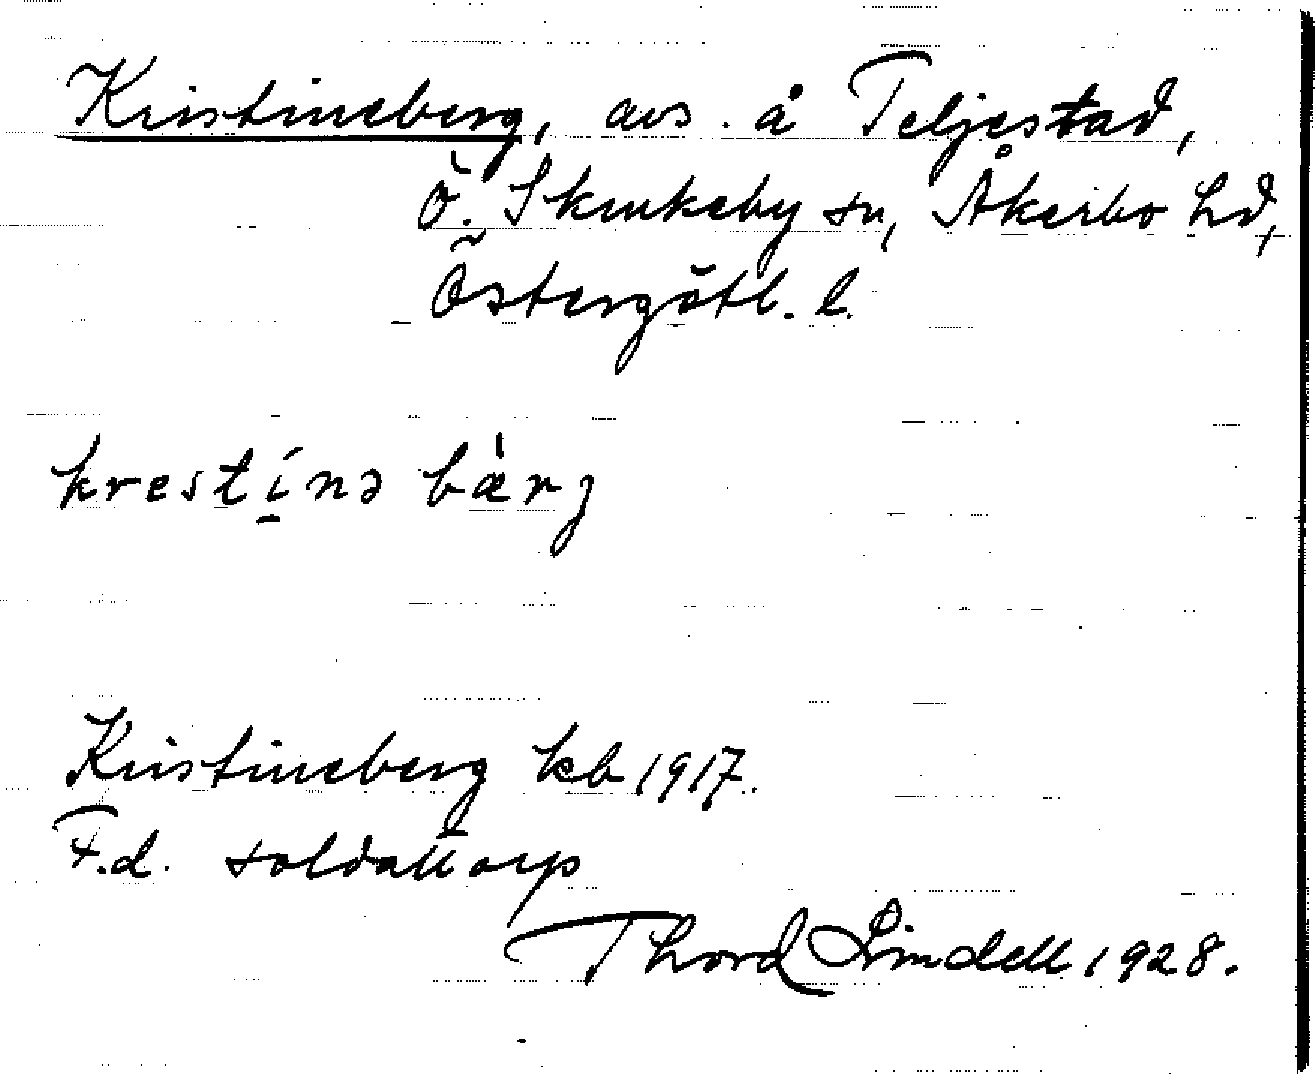 Kristineberg, avs. å Teljestad,
Ö. Skrukeby sn, Åkerbo hd,
Östergötl. l.
krestínə bàrj
Kristineberg kb 1917.
F.d. soldattorp
Thord Lindell 1928.